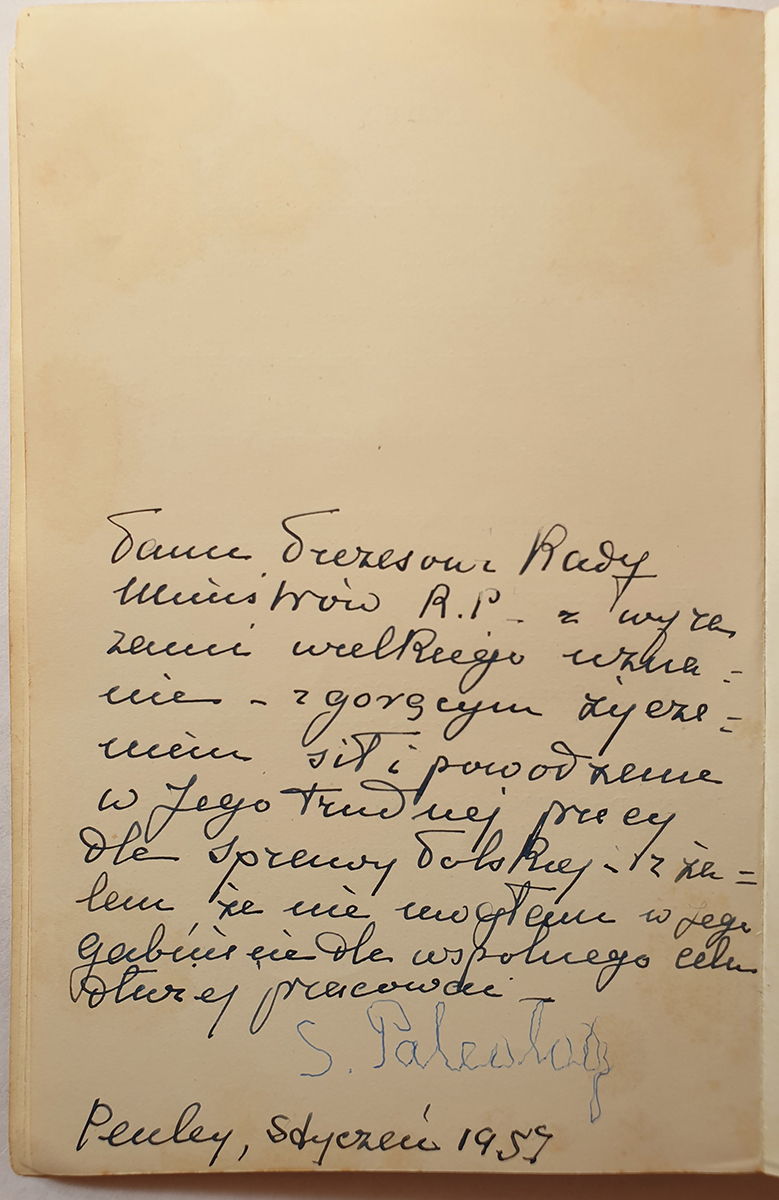 Panu Prezesowi Rady
Ministrów R.P. - z wyra
zami wielkiego uzna=
nia - z gorącym życze=
niem sił i powodzenia
w Jego trudnej pracy
dla sprawy Polskiej - i ża=
lem że nie mogłam w Jego
gabinecie dla wspólnego celu
dłużej pracować -
S.
Penley, styczeń 1957